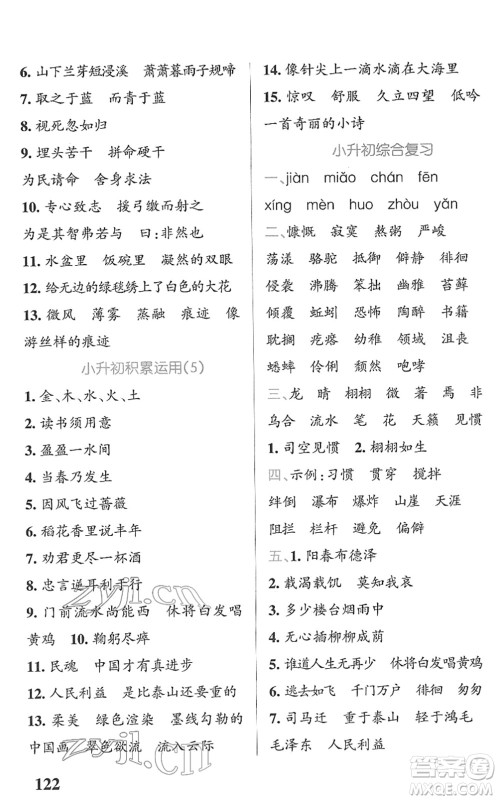 6. 山下兰芽短浸溪　萧萧暮雨子规啼
7. 取之于蓝　而青于蓝
8. 视死忽如归
9. 埋头苦干　拼命硬干
为民请命　舍身求法
10. 专心致志　援弓缴而射之
为是其智弗若与　曰:非然也
11. 水盆里　饭碗里　凝然的双眼
12. 给无边的绿毯绣上了白色的大花
13. 微风　薄雾　蒸融　痕迹　像
游丝样的痕迹
小升初积累运用(5)
1. 金、木、水、火、土
2. 读书须用意
3. 盈盈一水间
4. 当春乃发生
5. 因风飞过蔷薇
6. 稻花香里说丰年
7. 劝君更尽一杯酒
8. 忠言逆耳利于行
9. 门前流水尚能西　休将白发唱
黄鸡　10. 鞠躬尽瘁
11. 民魂　中国才有真进步
12. 人民利益　是比泰山还要重的
13. 柔美　绿色渲染　墨线勾勒的
中国画　翠色欲流　流入云际
122
14. 像针尖上一滴水滴在大海里
15. 惊叹　舒服　久立四望　低吟
一首奇丽的小诗
小升初综合复习
一、jiàn　miǎo　chán　fēn
xíng　mèn　huo　zhòu　yǎn
二、慷慨　寂寞　熬粥　严峻
荡漾　骆驼　抵御　僻静　徘徊
侵袭　沸腾　笨拙　幽雅　苔藓
倾覆　蚯蚓　恐怖　陶醉　书籍
耽搁　疙瘩　幼稚　领域　沮丧
蟋蟀　伶俐　势不可当
三、龙　晴　栩栩　栩　焉　非
乌合　流水　笔　花　天籁　见惯
1. 司空见惯　2. 栩栩如生
四、示例:习惯　贯穿　搅拌
绊倒　瀑布　爆炸　山崖　天涯
阻拦　栏杆　避免　偏僻
五、1. 阳春布德泽
2. 载渴载饥　莫知我哀
3. 多少楼台烟雨中
4. 无心插柳柳成荫
5. 谁道人生无再少　休将白发唱黄鸡
6. 逃去如飞　千门万户　匆匆
7. 司马迁　重于泰山　轻于鸿毛
毛泽东　其真无马邪
zyjl.cn
zyjl.cn
答案圈
MXQE.COM